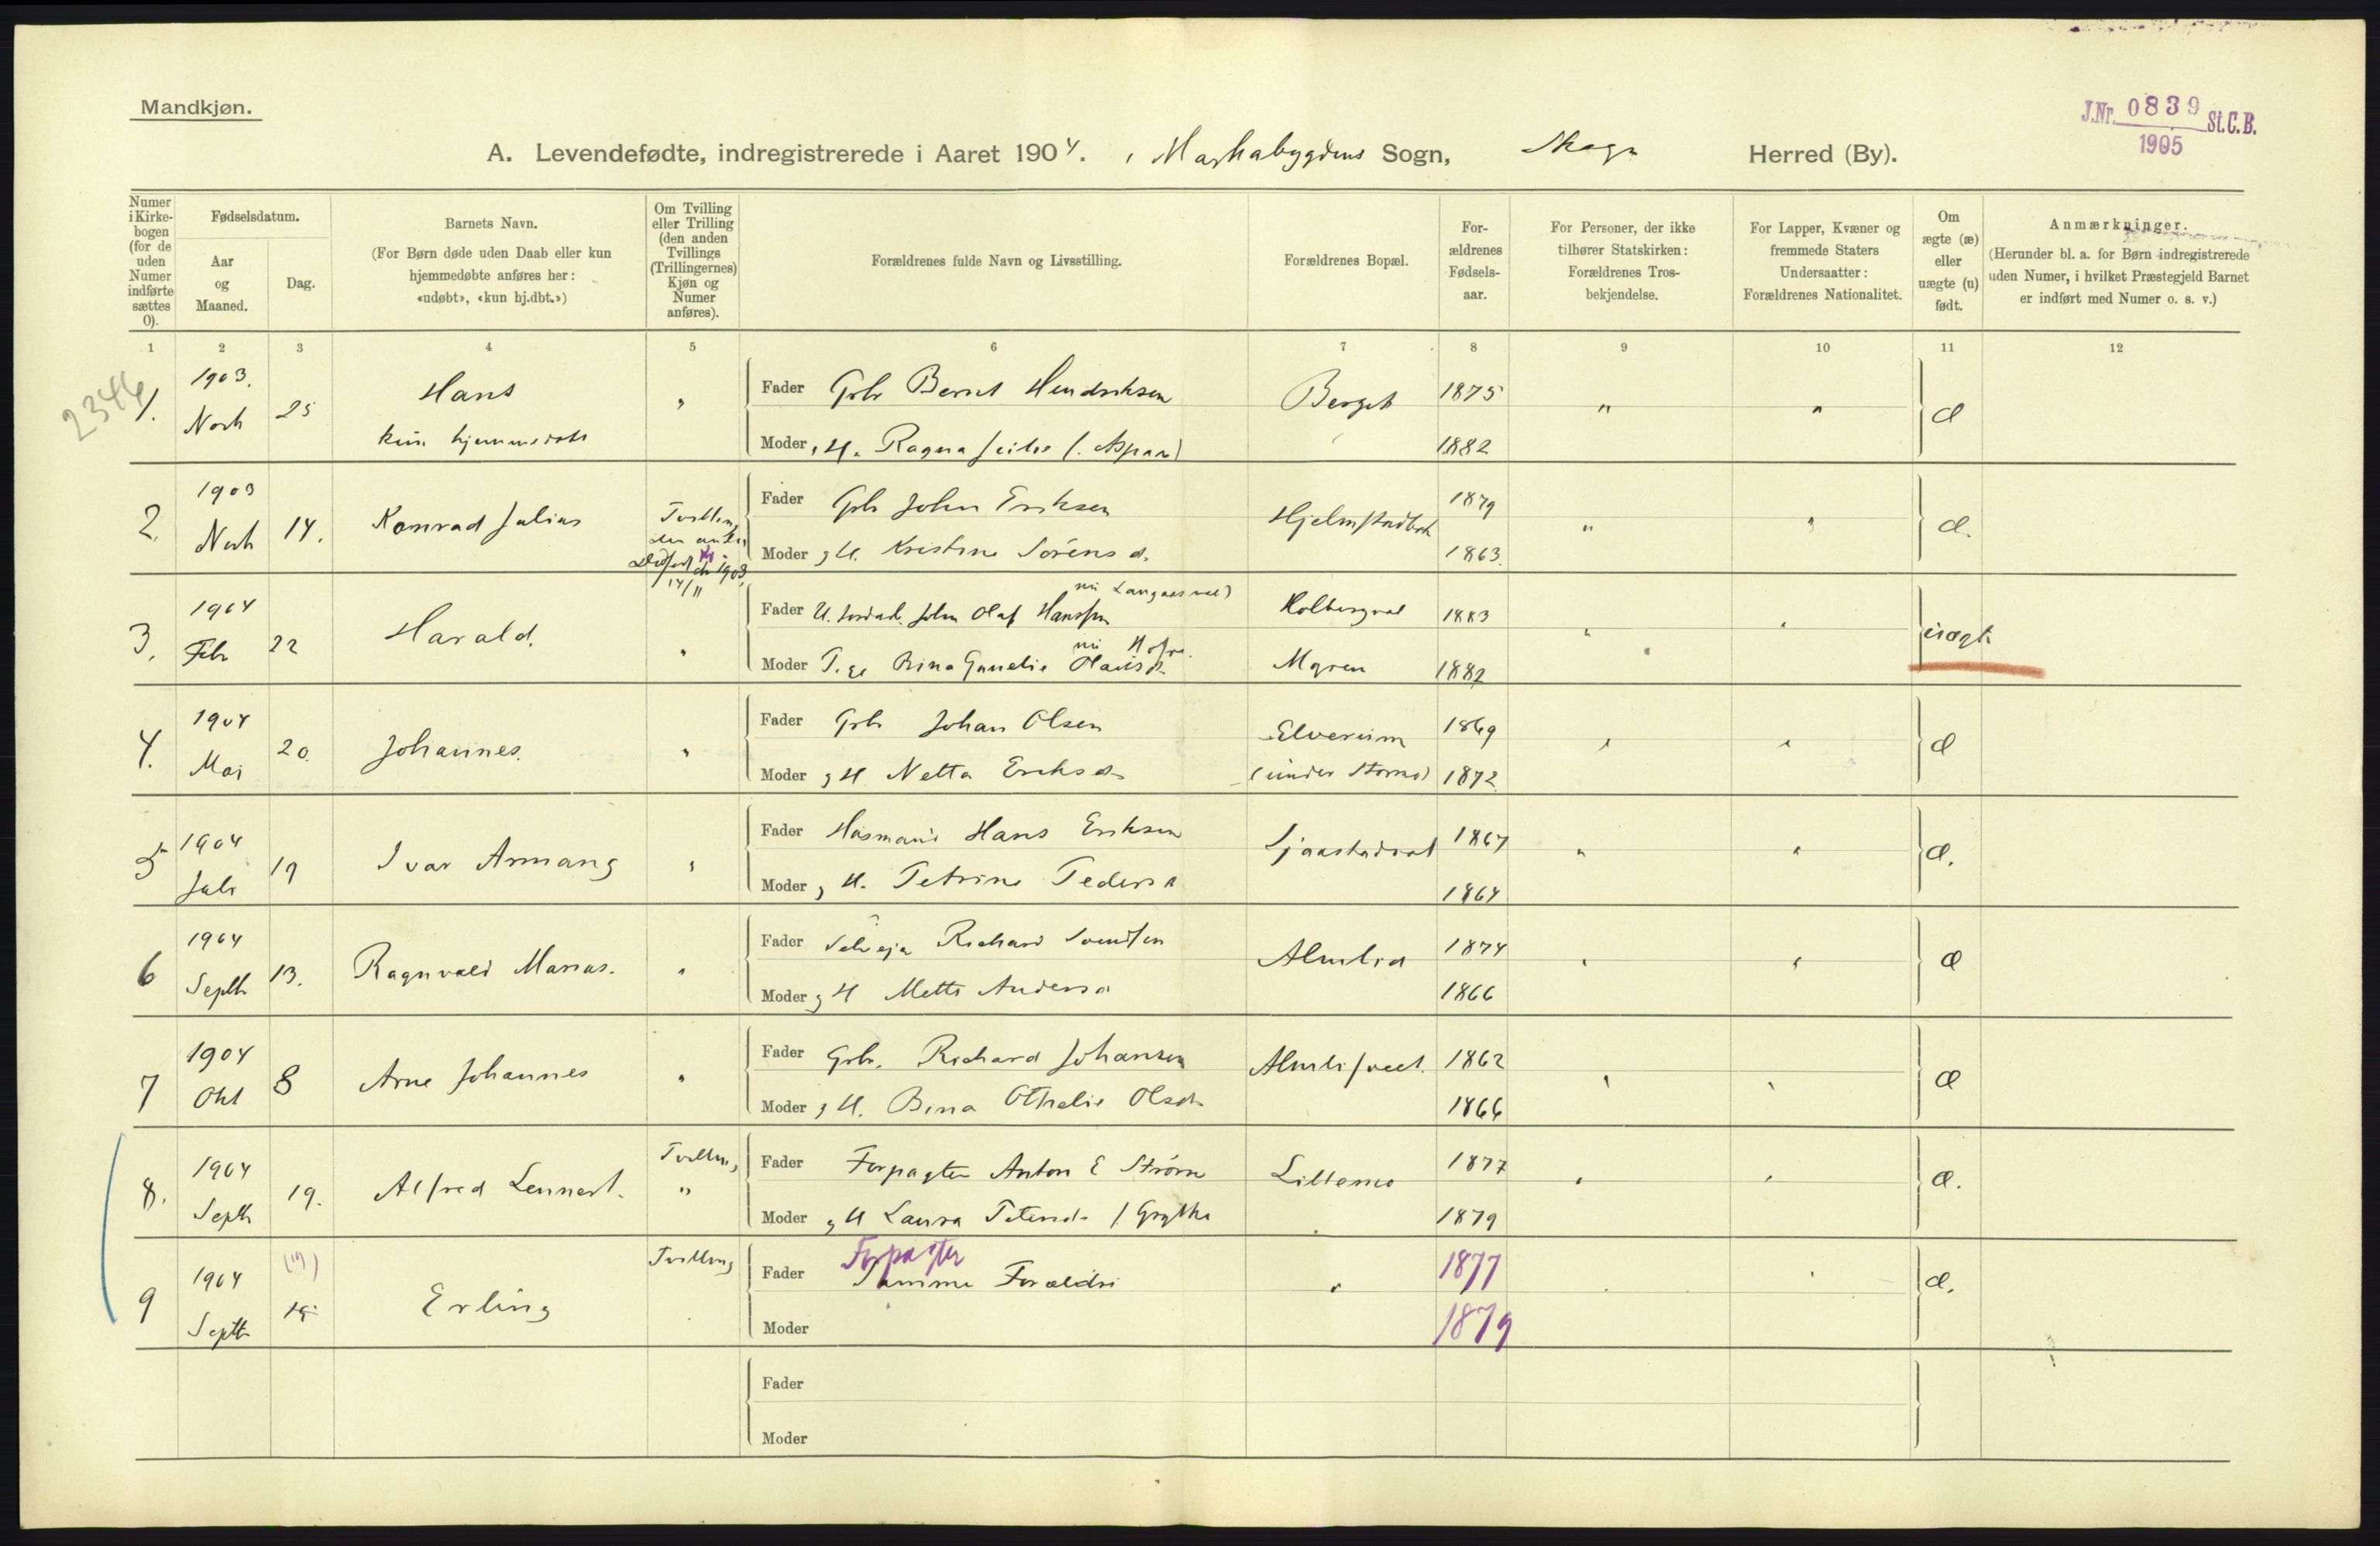 Mandkjøn.
J.Nr. 0839 St.C.B.
1905
A. Levendefødte, indregistrerede i Aaret 1904. i Markabygdens Sogn, Skogn Herred (By).
Numer i Kirke-bogen (for de uden Numer indførte sættes 0).
Fødselsdatum.
Aar og Maaned.
Dag.
Barnets Navn.
(For Børn døde uden Daab eller kun hjemmedøbte anføres her: «udøbt», «kun hj.dbt.»)
Om Tvilling eller Trilling (den anden Tvillings (Trillingernes) Kjøn og Numer anføres).
Forældrenes fulde Navn og Livsstilling.
Forældrenes Bopæl.
For-ældrenes Fødsels-aar.
For Personer, der ikke tilhører Statskirken: Forældrenes Tros-bekjendelse.
For Lapper, Kvæner og fremmede Staters Undersaatter: Forældrenes Nationalitet.
Om ægte (æ) eller uægte (u) født.
Anmærkninger.
(Herunder bl. a. for Børn indregistrerede uden Numer, i hvilket Præstegjeld Barnet er indført med Numer o. s. v.)
1 2 3 4 5 6 7 8 9 10 11 12
2346
1. 1903. Novb 25 Hans kun hjemmedøbt "
Fader Gbr Bernt Hendriksen Berget 1875 " " æ
Moder , H. Ragna 1882
2. 1903 Novb 14. Konrad Julius Tvilling den anden Dødfødt 14/11 1903
Fader Gbr John Eriksen 1879 " " æ.
Moder g H. Kristine Sørensd. 1863.
3. 1904 Febr 22 Harald. "
Fader U. John Olaf Hanssen 1883 " " uægte
Moder Olausd Myren 1882
4. 1904 Mai 20. Johannes. "
Fader Gbr Johan Olsen Elverum 1869 " " æ
Moder g H Netta Eriksd (under Stormo) 1872
5 1904 Juli 17 Ivar Armang "
Fader Husmand Hans Eriksen 1867 " " æ.
Moder g H. Petrine Pedersd 1864
6 1904 Septb 13. Ragnvald Marius. "
Fader Selveja Richard Svendsen Almlid 1874 " " æ
Moder g H Mette Andersd 1866
7 1904 Okt 8 Arne Johannes "
Fader Gbr. Richard Johansen 1862 " " æ
Moder g H. Bina Othelie Olsd 1866
8. 1904 Septb 19. Alfred Lennart. Tvilling "
Fader Forpagter Anton E Strøm Lillemo 1877 " " æ.
Moder g H Laura Petersd 1879
9 1904 Septb (19) 19. Erling Tvilling
Forpagter
Fader Samme Forældre " 1877 æ.
Moder 1879
Fader
Moder